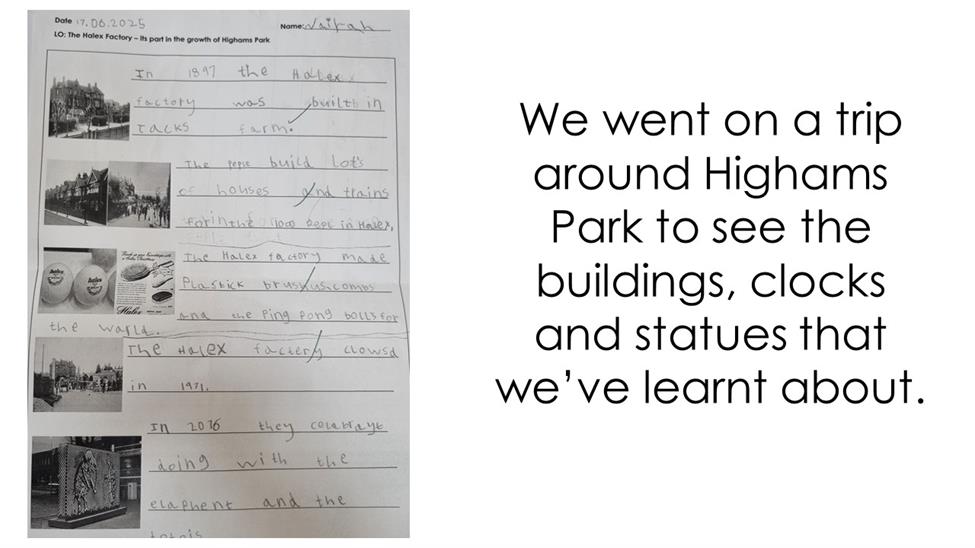 Date 17.06.2025
Name:
LO: The Halex Factory – Its part in the growth of Highams Park
In 1897 the Halex
factory was builtb in
Jacks farm.
The pepie build lot's
of houses and trains
for in the 1100 pept in Halex.
The Halex factory made
Plastick brushus combs
and the Ping Pong bolls for
the warld.
Halex
The Halex factery clowsd
in 1971.
In 2016 they celabrayt
doing with the
elaphent and the
We went on a trip
around Highams
Park to see the
buildings, clocks
and statues that
we’ve learnt about.